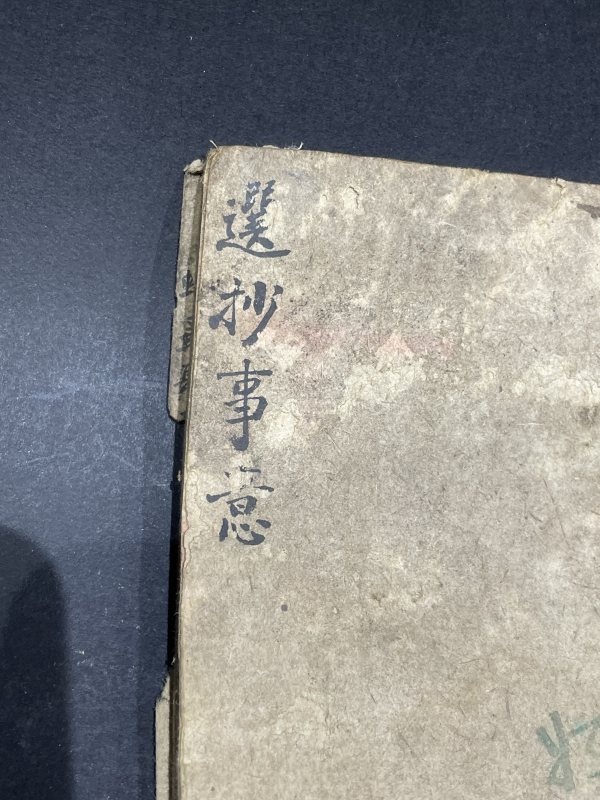 選抄事意